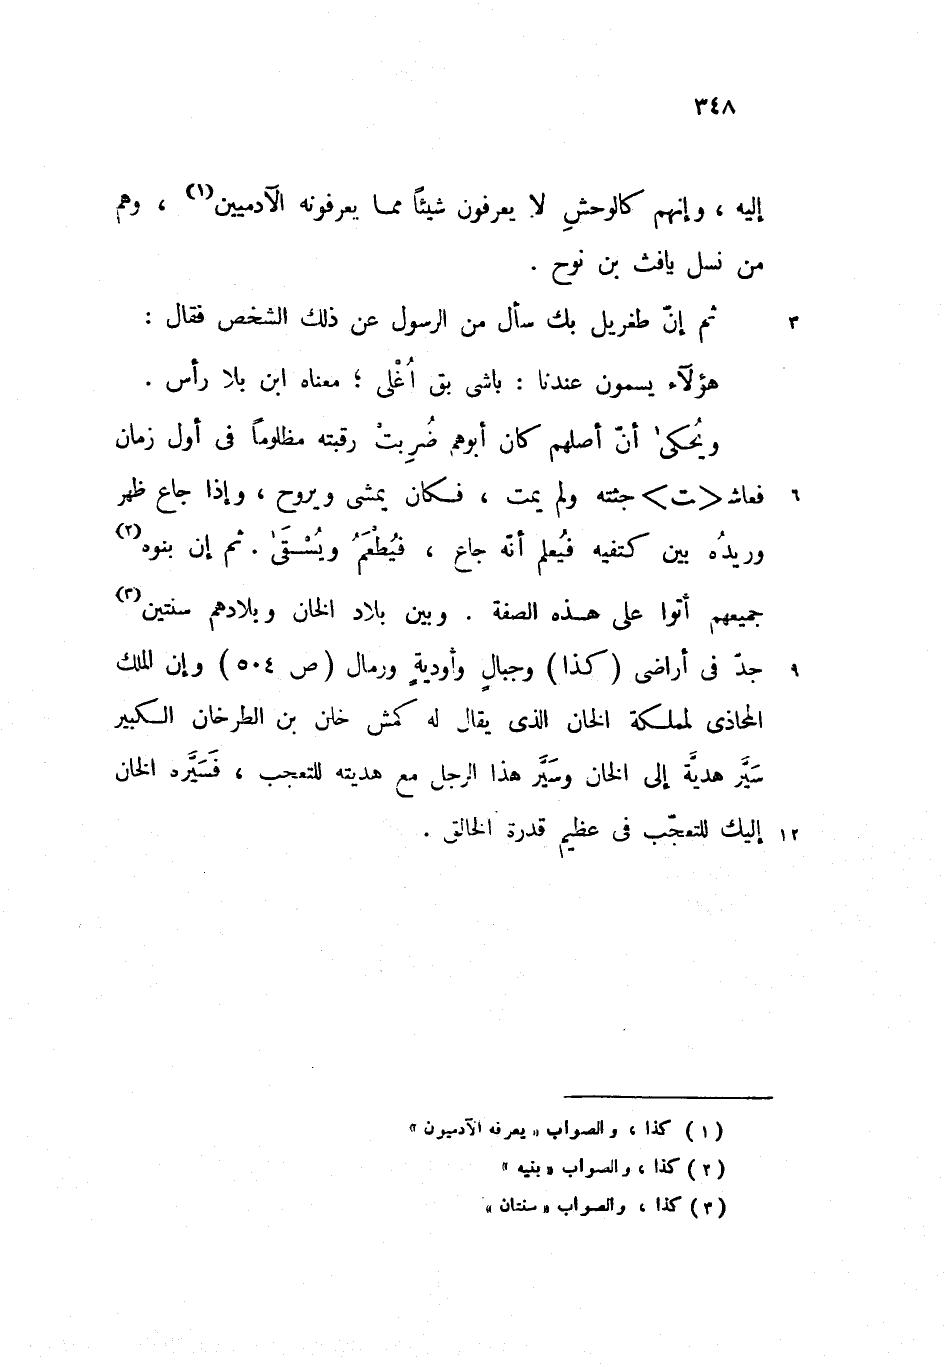 ٣٤٨
إليه ، وإنهم كالوحشِ لا يعرفون شيئاً ممـا يعرفونه الآدميين(١) ، وهم
من نسل يافث بن نوح .
٣ ثم إنّ طغريل بك سأل من الرسول عن ذلك الشخص فقال :
هؤلآء يسمون عندنا : باشى بق اُغْلى ؛ معناه ابن بلا رأس .
ويُحكىٰ أنّ أصلهم كان أبوهم ضُرِبتْ رقبته مظلوماً فى أول زمان
٦ فعاشـ<ـت> جثته ولم يمت ، فـكان يمشى ويروح ، وإذا جاع ظهر
وريدُه بين كتفيه فيُعلم أنّه جاع ، فيُطْعَمُ ويُسْـقَىٰ . ثم إن بنوه(٢)
جميعهم أتوا على هـذه الصفة . وبين بلاد الخان وبلادهم سنتين(٣)
٩ جدّ فى أراضى (كذا) وجبالٍ وأوديةٍ ورمال (ص ٥٠٤) وإن الملك
المحاذى لمملـكة الخان الذى يقال له كمش خان بن الطرخان الـكبير
سَيَّر هديَّة إلى الخان وسَيَّر هذا الرجل مع هديته للتعجب ، فَسَيَّره الخان
١٢ إليك للتعجّب فى عظيم قدرة الخالق .
(١) كذا ، والصواب «يعرفه الآدميون»
(٢) كذا ، والصواب «بنيه»
(٣) كذا ، والصواب «سنتان»